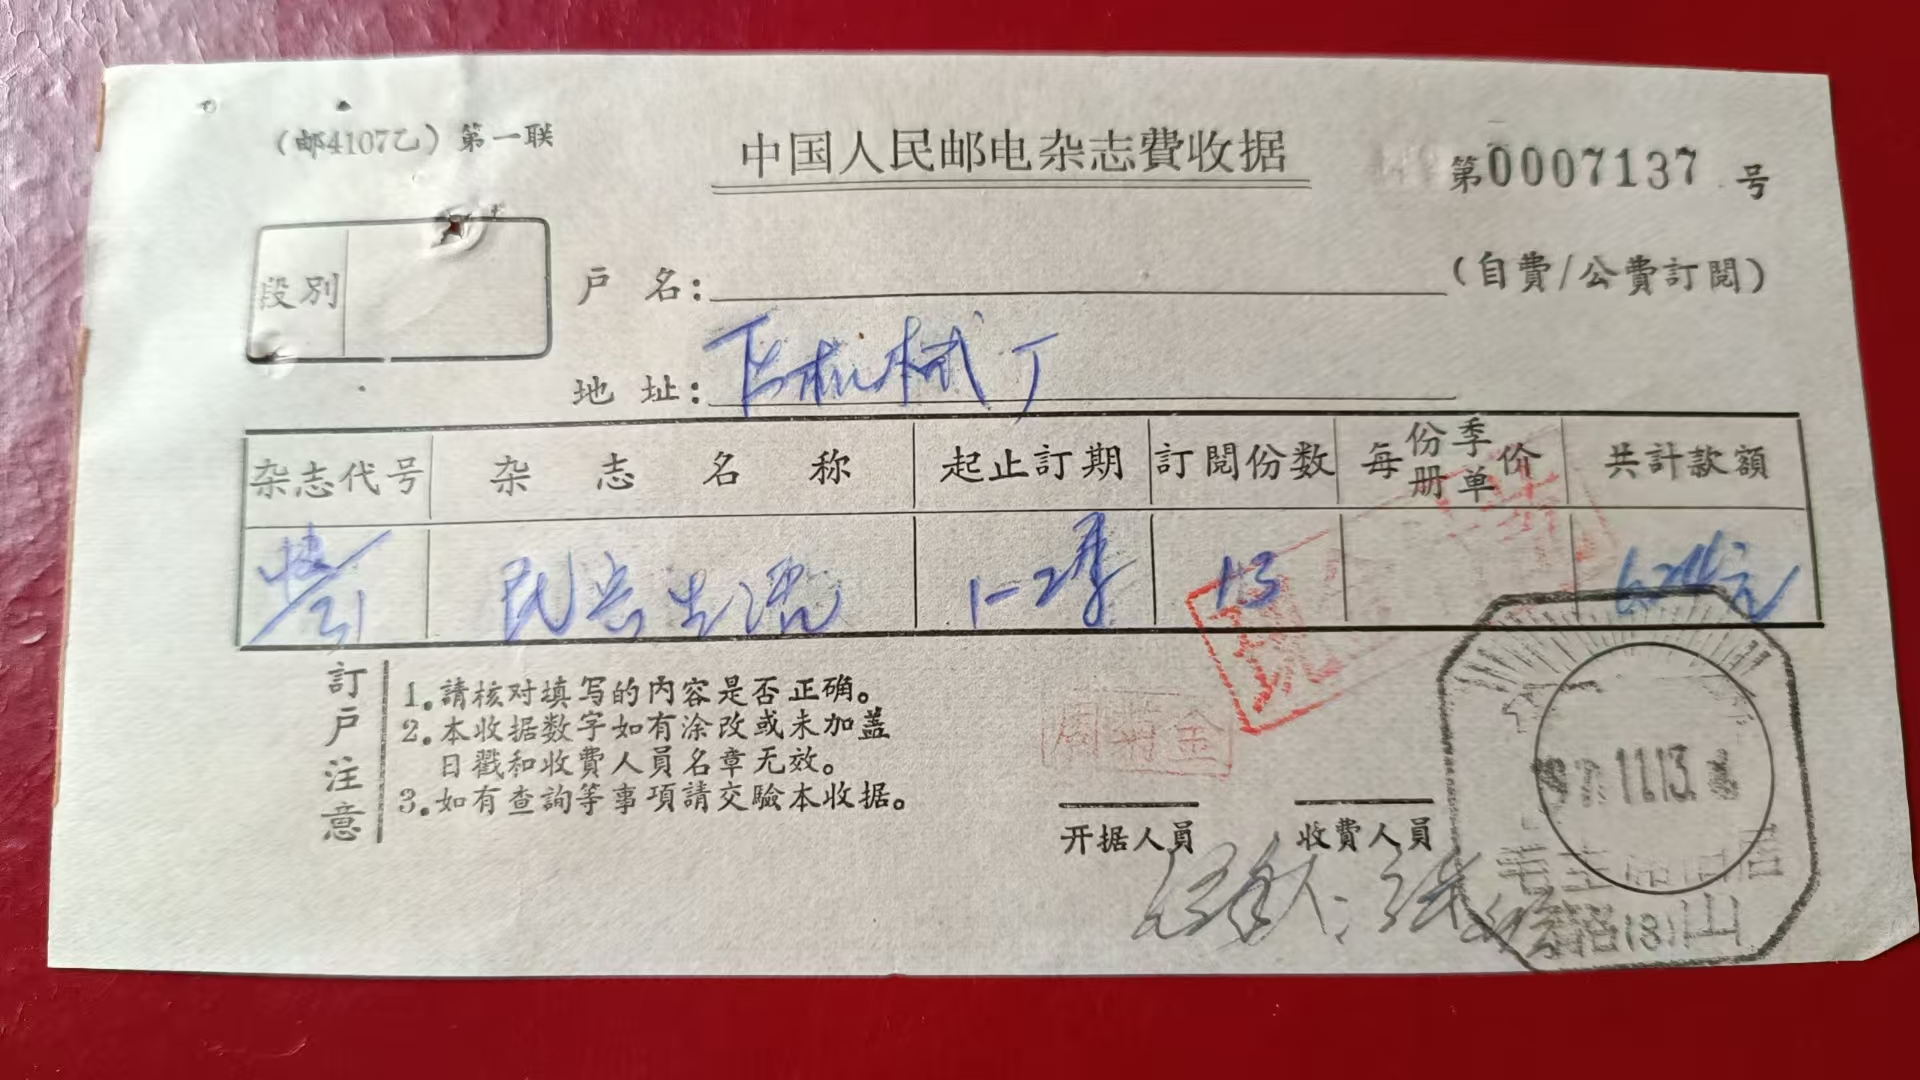 （邮4107乙）第一联
中国人民邮电杂志費收据
第0007137号
段別
户名：
（自費/公費訂閱）
地址： 机械厂
杂志代号 杂志名称 起止訂期 訂閱份数 每份季册单价 共計款額
民兵生活 1-2季 13 元
訂户注意
1.請核对填写的内容是否正确。
2.本收据数字如有涂改或未加盖
日戳和收費人員名章无效。
3.如有查詢等事項請交驗本收据。
周菊金
开据人員 收費人員
11.13.
韶山